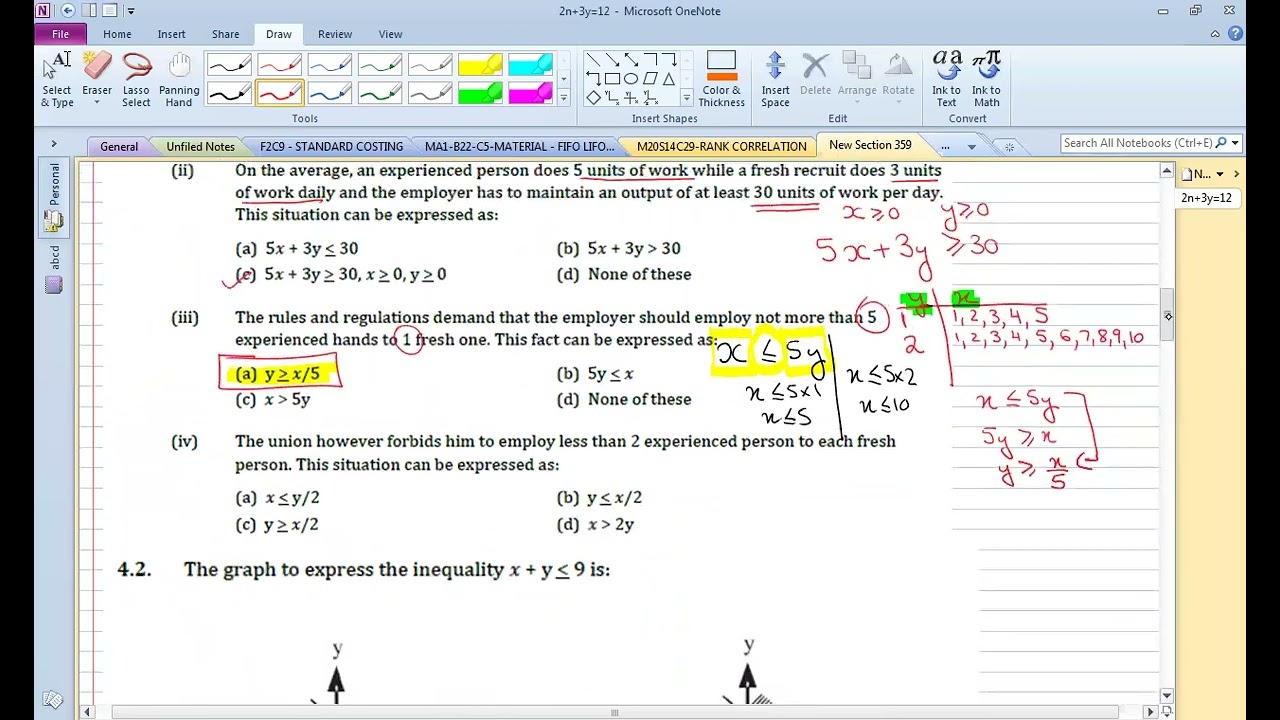 2n+3y=12 - Microsoft OneNote
File Home Insert Share Draw Review View
Select & Type
Eraser
Lasso Select
Panning Hand
Color & Thickness
Insert Space
Delete
Arrange
Rotate
Ink to Text
Ink to Math
Tools
Insert Shapes
Edit
Convert
General
Unfiled Notes
F2C9 - STANDARD COSTING
MA1-B22-C5-MATERIAL - FIFO LIFO...
M20S14C29-RANK CORRELATION
New Section 359
...
Search All Notebooks (Ctrl+E)
Personal
abcd
N...
2n+3y=12
(ii) On the average, an experienced person does 5 units of work while a fresh recruit does 3 units
of work daily and the employer has to maintain an output of at least 30 units of work per day.
This situation can be expressed as:
x ≥ 0 y ≥ 0
(a) 5x + 3y ≤ 30 (b) 5x + 3y > 30
5x + 3y ≥ 30
(c) 5x + 3y ≥ 30, x ≥ 0, y ≥ 0 (d) None of these
y x
1 1, 2, 3, 4, 5
2 1, 2, 3, 4, 5, 6, 7, 8, 9, 10
(iii) The rules and regulations demand that the employer should employ not more than 5
experienced hands to 1 fresh one. This fact can be expressed as:
x ≤ 5y
(a) y ≥ x/5 (b) 5y ≤ x
(c) x > 5y (d) None of these
x ≤ 5×1
x ≤ 5
x ≤ 5×2
x ≤ 10
x ≤ 5y
5y ≥ x
y ≥ x/5
(iv) The union however forbids him to employ less than 2 experienced person to each fresh
person. This situation can be expressed as:
(a) x ≤ y/2 (b) y ≤ x/2
(c) y ≥ x/2 (d) x > 2y
4.2. The graph to express the inequality x + y ≤ 9 is:
y y